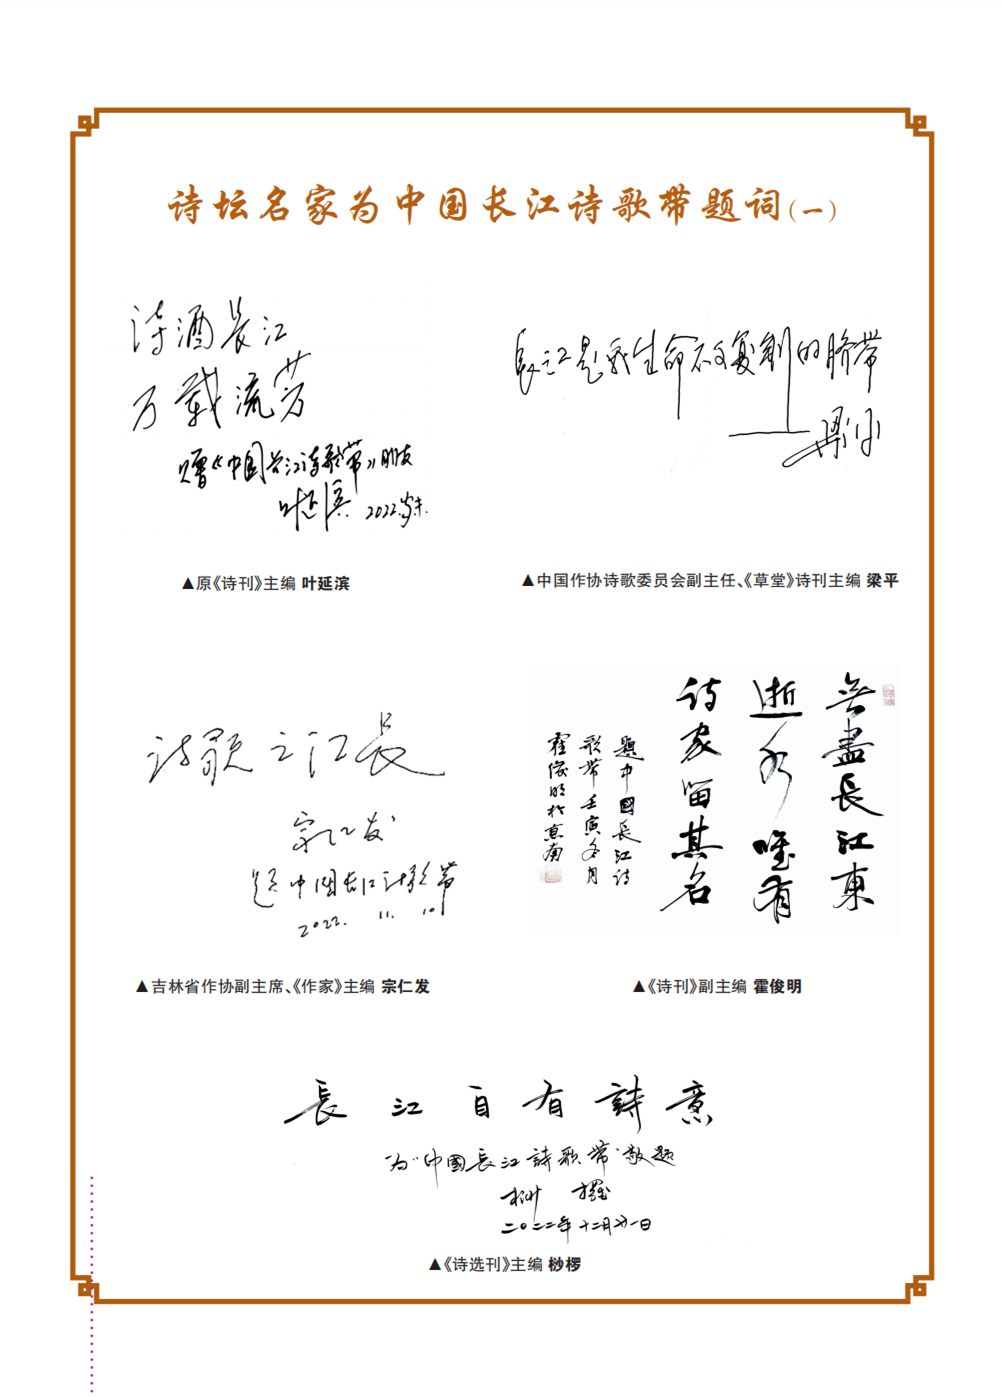 诗坛名家为中国长江诗歌带题词(一)
诗酒长江
万载流芳
赠《中国长江诗歌带》朋友
叶延滨 2022.岁末.
▲原《诗刊》主编 叶延滨
長江是我生命不可复制的脐带
——梁平
▲中国作协诗歌委员会副主任、《草堂》诗刊主编 梁平
诗歌之江長
宗仁发
题中国长江诗歌带
2022. 11. 10
▲吉林省作协副主席、《作家》主编 宗仁发
无盡長江東
逝水唯有
诗家留其名
題中國長江诗
歌带壬寅冬月
霍俊明於京南
▲《诗刊》副主编 霍俊明
長江自有詩意
为“中國長江詩歌带”敬题
桫椤
二〇二二年十二月廿一日
▲《诗选刊》主编 桫椤